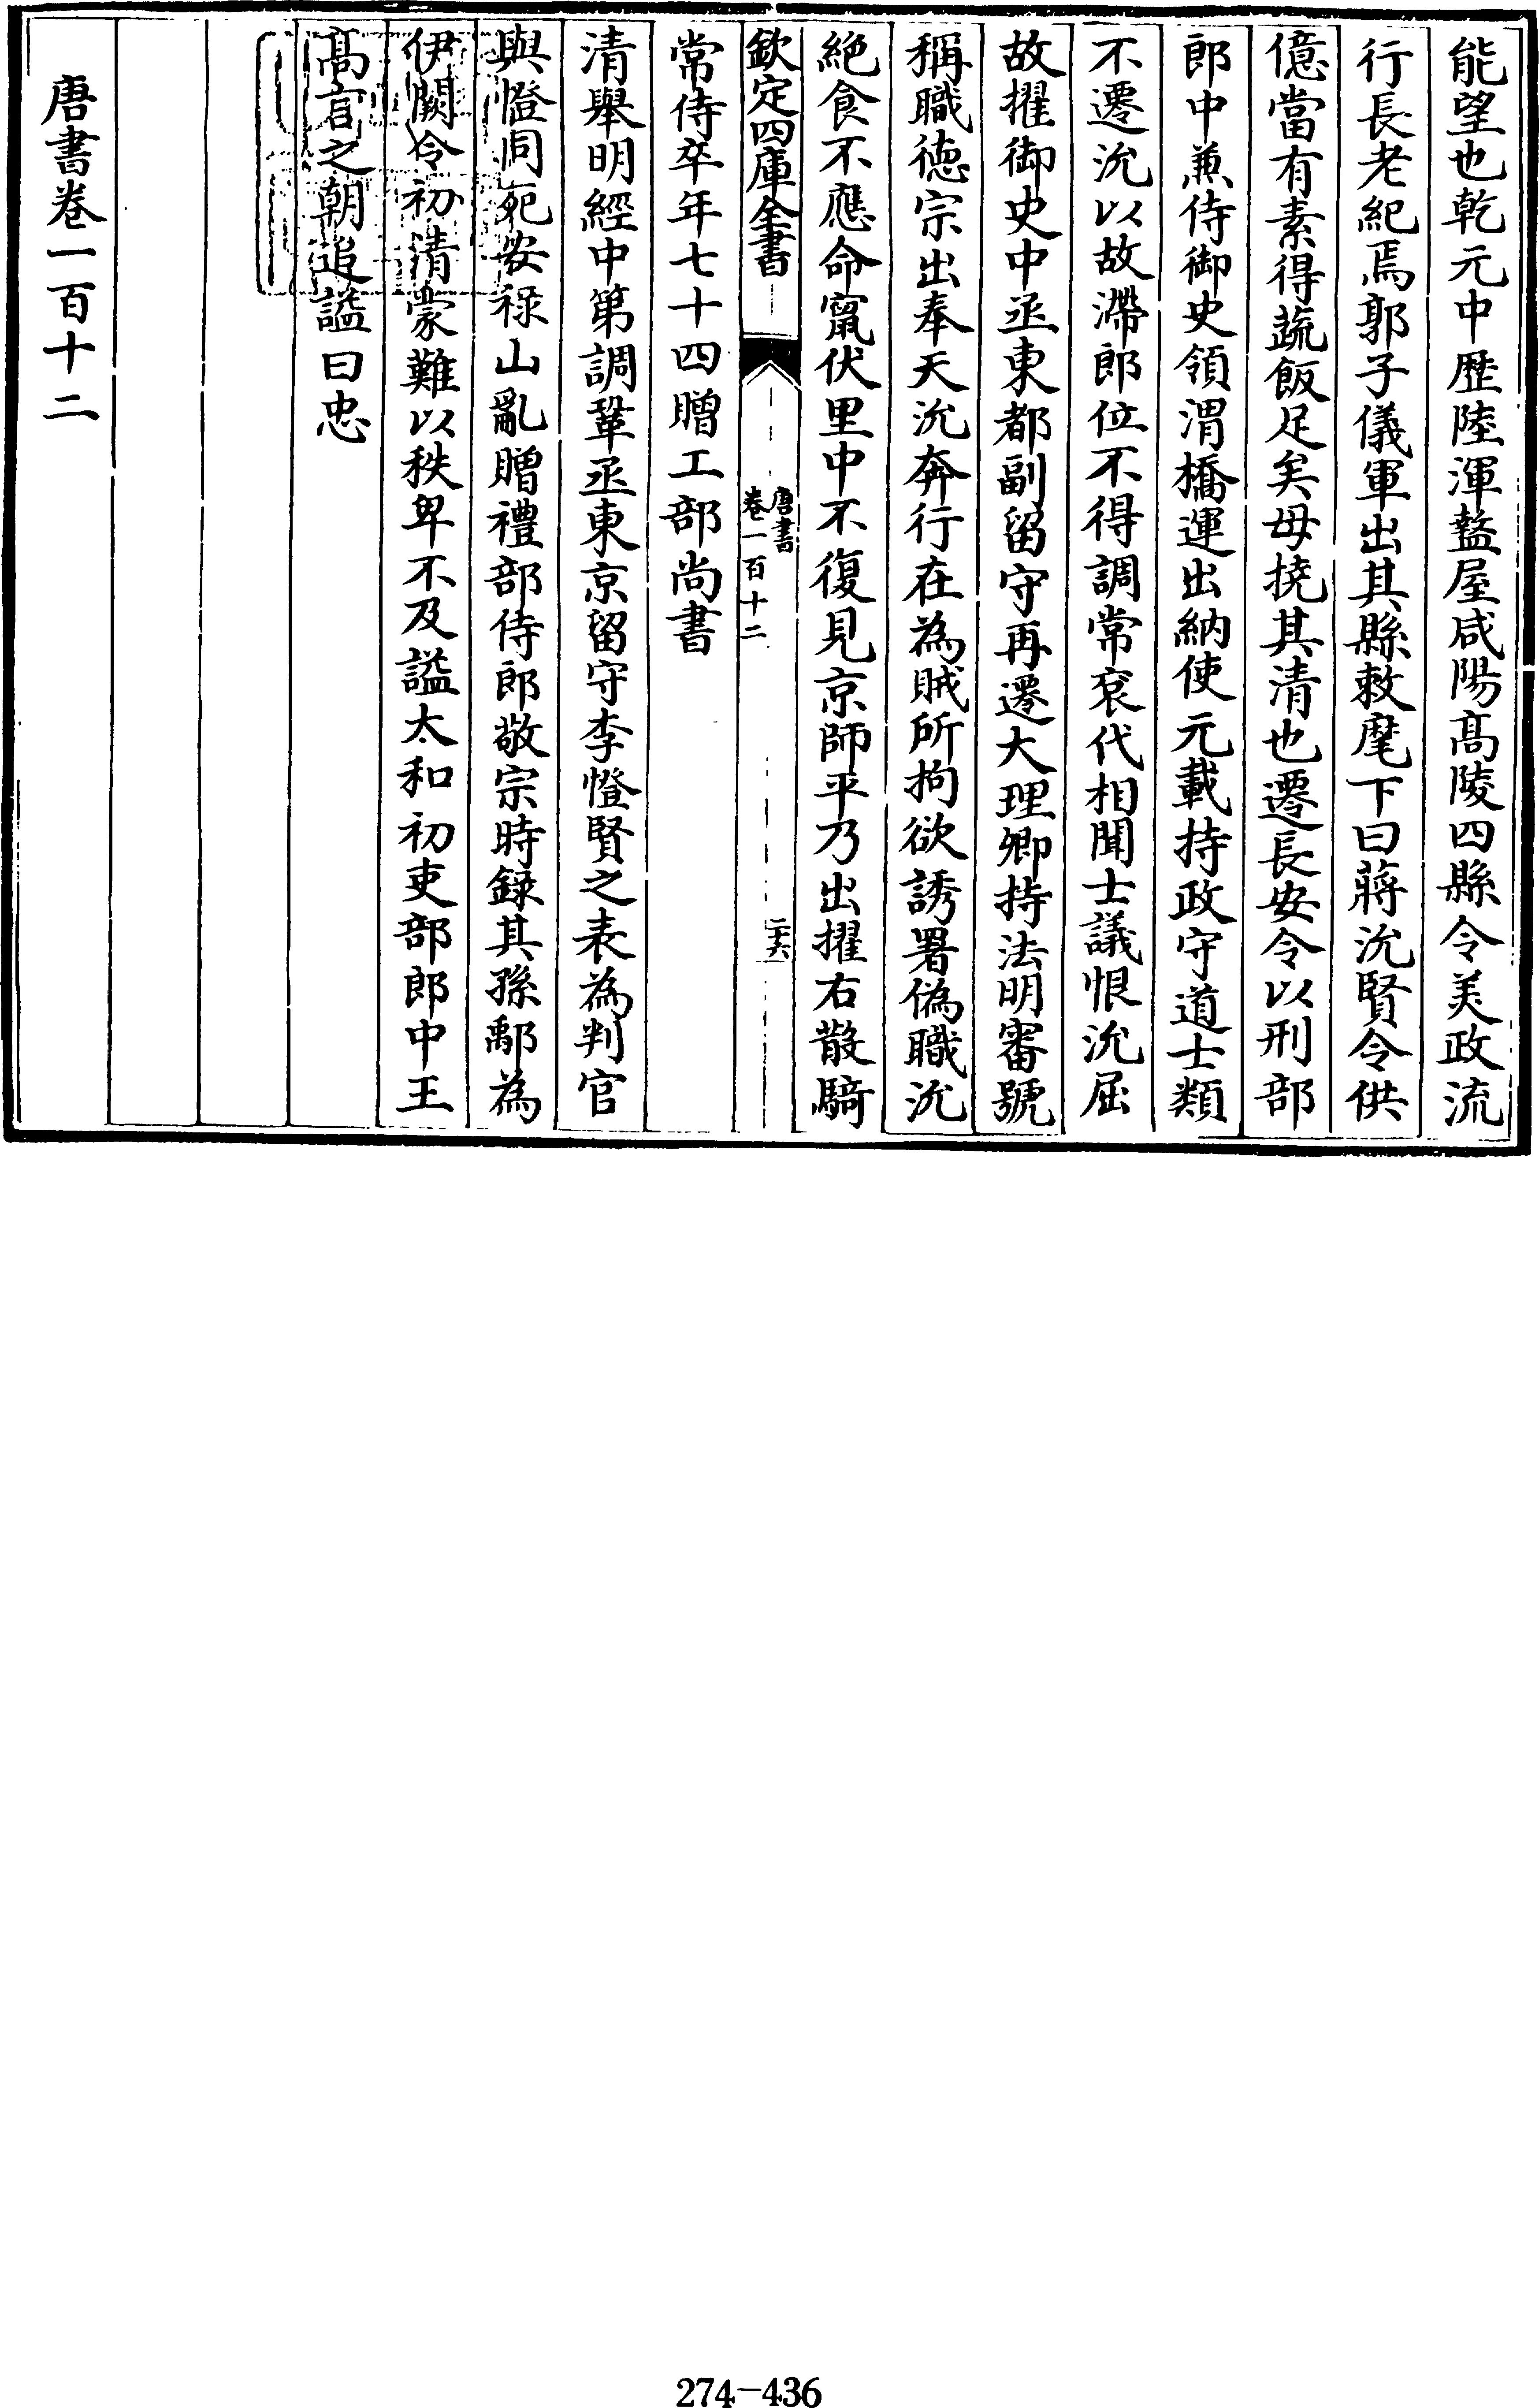 能望也乾元中歴陸渾盩屋咸陽髙陵四縣令美政流
行長老紀焉郭子儀軍出其縣敕麾下曰蔣沇賢令供
億當有素得蔬飯足矣毋撓其清也遷長安令以刑部
郎中兼侍御史領渭橋運出納使元載持政守道士類
不遷沇以故滯郎位不得調常衮代相聞士議恨沇屈
故擢御史中丞東都副留守再遷大理卿持法明審號
稱職德宗出奉天沇奔行在為賊所拘欲誘署偽職沇
絶食不應命竄伏里中不復見京師平乃出擢右散騎
欽定四庫全書
唐書
卷一百十二
二十六
常侍卒年七十四贈工部尚書
清舉明經中第調鞏丞東京留守李憕賢之表為判官
與憕同死安禄山亂贈禮部侍郎敬宗時録其孫鄅為
伊闕令初清蒙難以秩卑不及謚太和初吏部郎中王
髙言之朝追謚曰忠
唐書卷一百十二
274-436